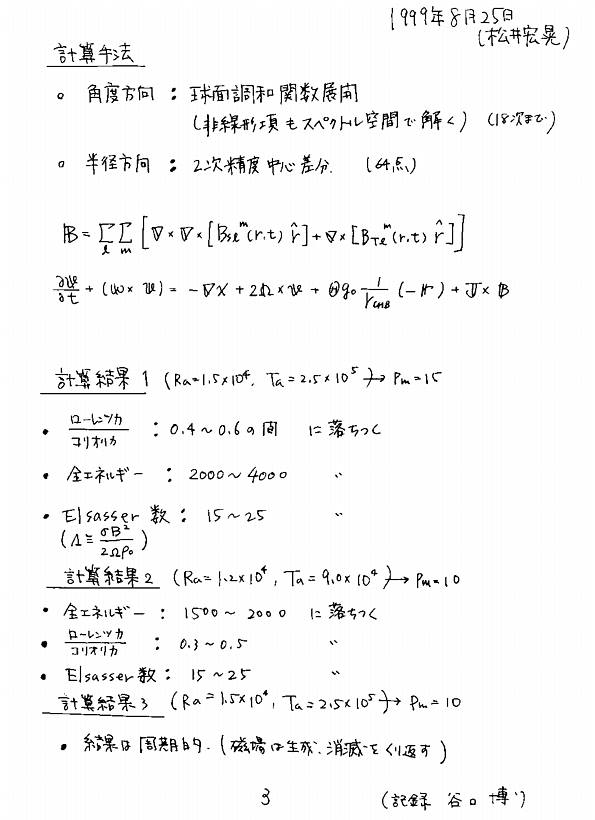 1999年8月25日
(松井宏晃)
計算手法
○ 角度方向 : 球面調和関数展開
(非線形項もスペクトル空間で解く) (18次まで)
○ 半径方向 : 2次精度中心差分. (64点)
B = Σ_l Σ_m [∇×∇×[B_{Sl}^m(r,t) r̂] + ∇×[B_{Tl}^m(r,t) r̂]]
∂u/∂t + (ω×u) = -∇χ + 2Ω×u + Θg₀ 1/r_{CMB} (-r) + J×B
計算結果1 (Ra=1.5×10⁴, Ta=2.5×10⁵) → Pm=15
• ローレンツ力/コリオリ力 : 0.4～0.6の間 に落ちつく
• 全エネルギー : 2000～4000 〃
• Elsasser数 : 15～25 〃
(Λ≡σB²/2Ωρ₀)
計算結果2 (Ra=1.2×10⁴, Ta=9.0×10⁴) → Pm=10
• 全エネルギー : 1500～2000 に落ちつく
• ローレンツ力/コリオリ力 : 0.3～0.5 〃
• Elsasser数 : 15～25 〃
計算結果3 (Ra=1.5×10⁴, Ta=2.5×10⁵) → Pm=10
• 結果は周期的. (磁場は生成、消滅をくり返す)
3
(記録 谷口 博)